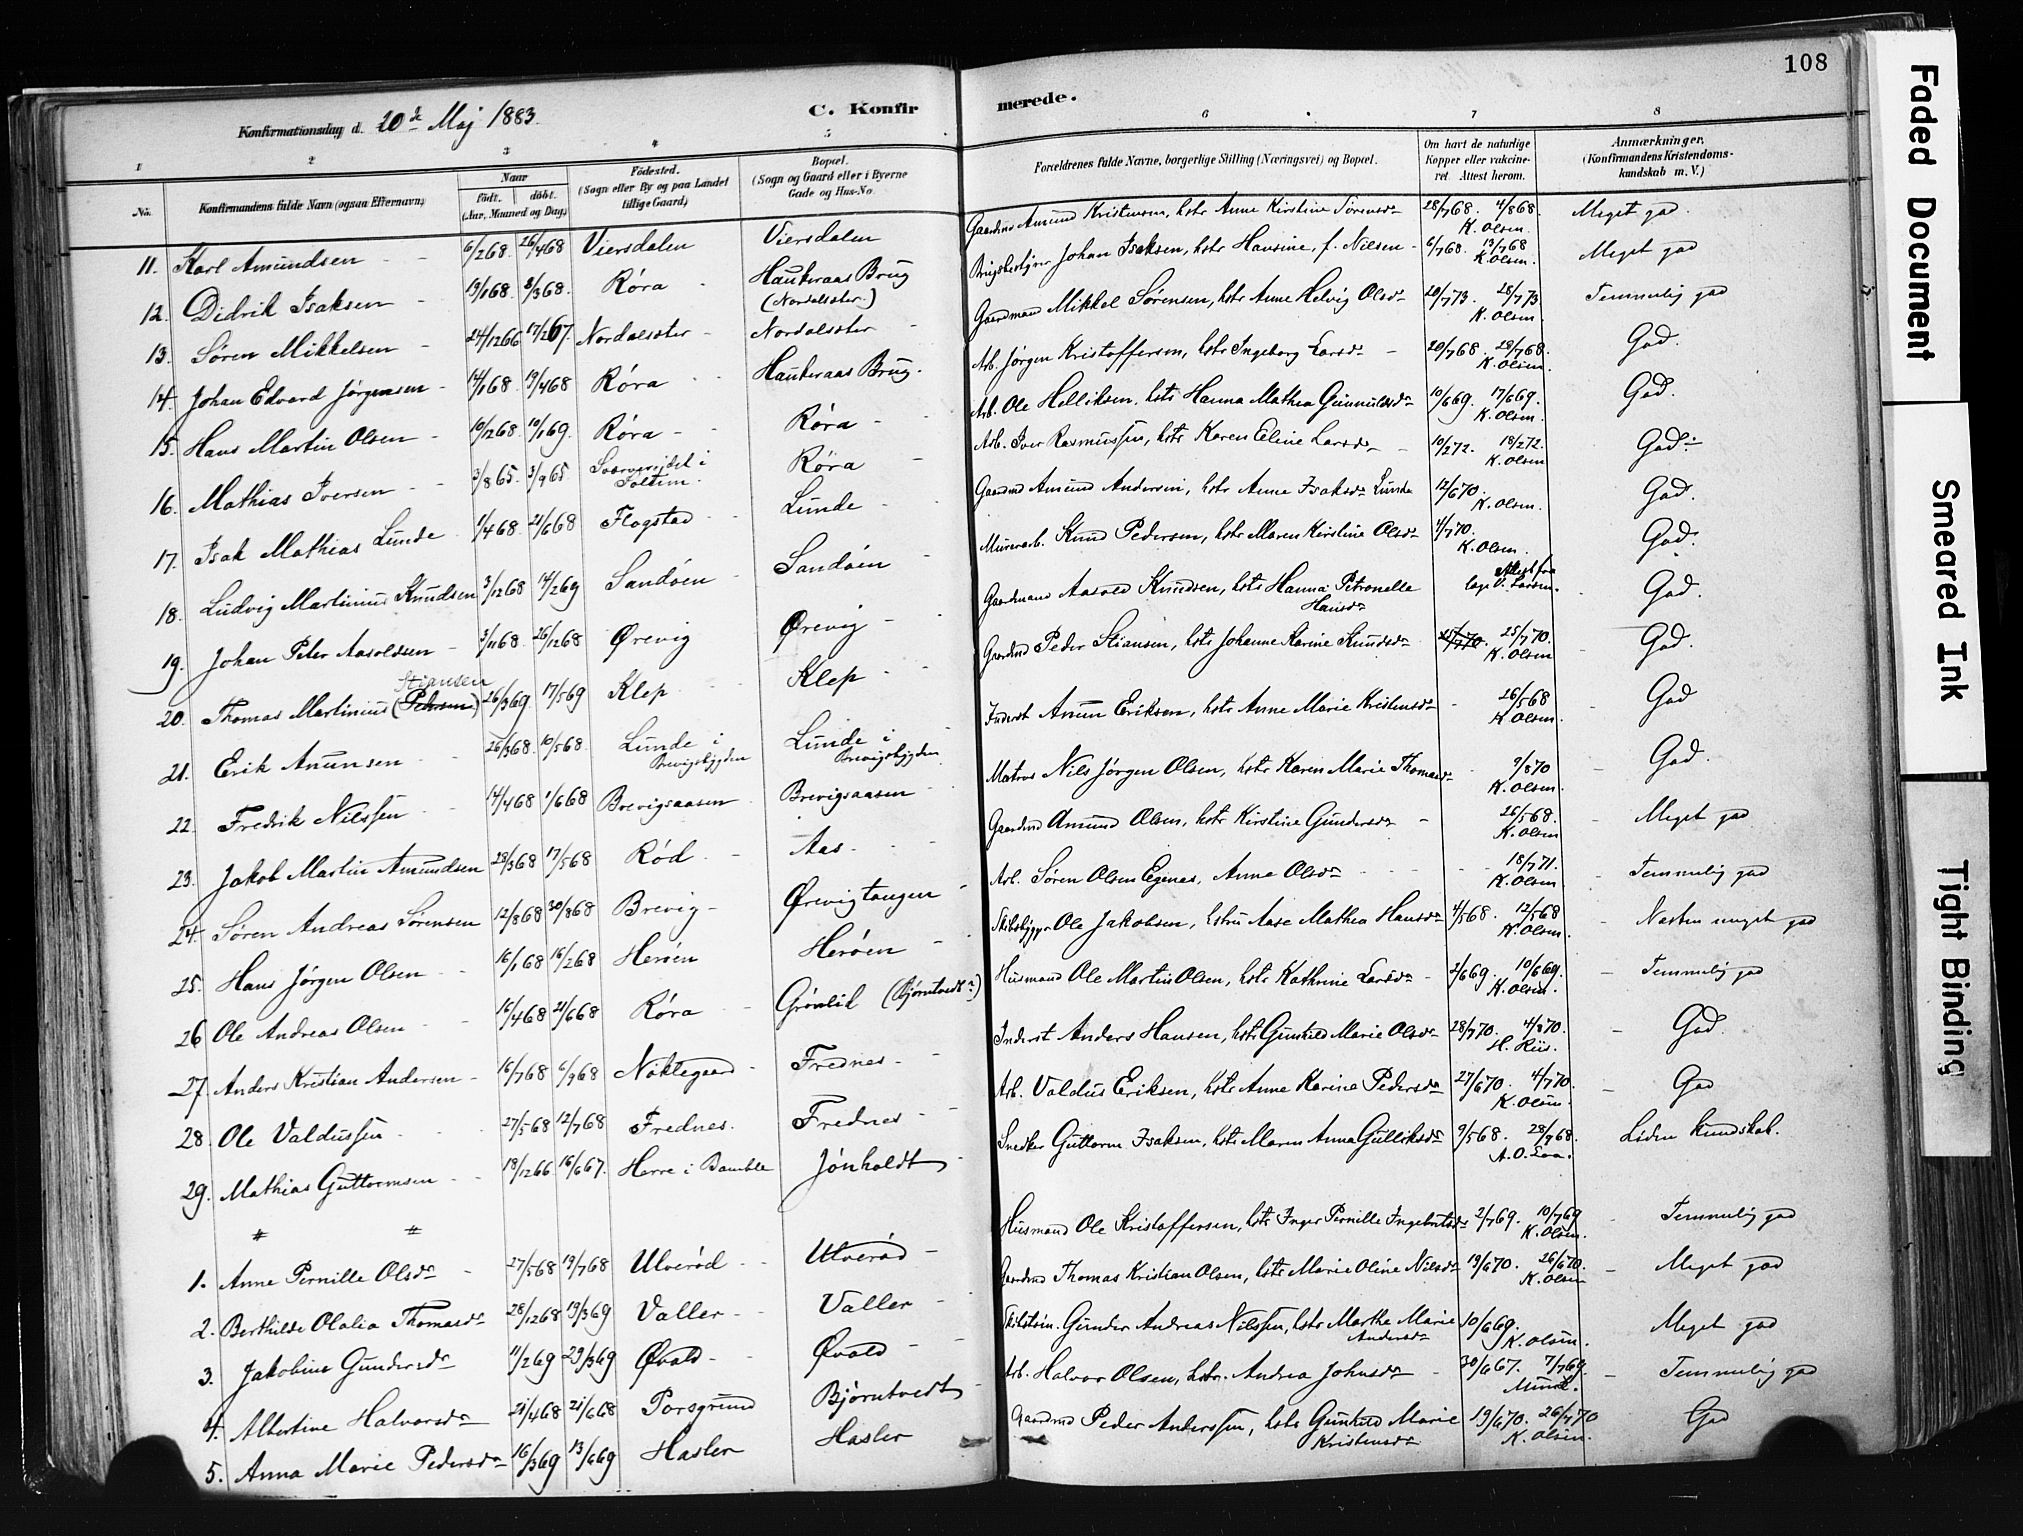 108
Konfirmationsdag d. 20de Maj 1883.
C. Konfirmerede.
1 2 3 4 5 6 7 8
No. Konfirmandens fulde Navn (ogsaa Efternavn)
Naar født. døbt. (Aar, Maaned og Dag)
Fødested. (Sogn eller By og paa Landet tillige Gaard)
Bopæl. (Sogn og Gaard eller i Byerne Gade og Hus-No.
Forældrenes fulde Navne, borgerlige Stilling (Næringsvei) og Bopæl.
Om havt de naturlige Kopper eller vakcineret. Attest herom.
Anmærkninger. (Konfirmandens Kristendomskundskab m. V.)
11. Karl Amundsen 6/2 68. 26/4 68 Viersdalen Viersdalen Gaardmd Amund Kristensen, hstr Anne Kirstine Sørensdr 28/7 68. 4/8 68. K. Olsen. Meget god.
12. Didrik Isaksen 19/1 68. 8/3 68. Røra Haukeraas Brug (Nordalseter.) Brugsbestyrer Johan Isaksen, hstr Hansine, f. Nilsen 6/7 68. 13/7 68 K. Olsen. Meget god
13. Søren Mikkelsen 24/12 66 17/2 67. Nordalseter Nordalseter Gaardmand Mikkel Sørensen, hstr Anne Helvig Olsdr 20/7 73. 28/7 73. K. Olsen Temmelig god
14. Johan Edvard Jørgensen 14/1 68. 19/4 68 Røra Haukeraas Brug. Arb. Jørgen Kristoffersen, hstr Ingeborg Larsdr 20/7 68. 28/7 68. K. Olsen. God.
15. Hans Martin Olsen 10/12 68. 10/1 69. Røra Røra Arb. Ole Helliksen, hstr Hanna Mathea Gunnulsdr 10/6 69. 17/6 69. K. Olsen. God.
16. Mathias Iversen 3/8 65. 3/9 65 Røra Arb. Iver Rasmussen, hstr Karen Eline Larsdr 10/2 72. 18/2 72. K. Olsen God.
17. Isak Mathias Lunde 1/4 68. 21/6 68 Flogstad Lunde Gaardmd Amund Andersen, hstr Anne Isaksdr Lunde 12/6 70. K. Olsen. God.
18. Ludvig Martinius Knudsen 3/12 68 14/2 69 Sandøen Sandøen Murerarb. Knud Pedersen, hstr Maren Kirstine Olsdr 4/7 70. K. Olsen. God.
19. Johan Peter Aasoldsen 3/11 68. 26/12 68 Ørevig Ørevig Gaardmand Aasold Knudsen, hstr Hanna Petronelle Hansdr Attest fra Læge O. Larsen. God.
20. Thomas Martinius (Pedersen) Stiansen 26/3 69 17/5 69 Klep Klep Gaardmd Peder Stiansen, hstr Johanne Karine Knudsdr 25/7 70. 25/7 70. K. Olsen God.
21. Erik Anunsen 26/3 68. 10/5 68. Lunde i Brevigsbygden Lunde i Brevigsbygden Inderst Anun Eriksen, hstr Anne Marie Kristensdr 26/5 68 K. Olsen. God
22. Fredrik Nilssen 14/4 68 1/6 68 Brevigsaasen Brevigsaasen Matros Nils Jørgen Olsen, hstr Karen Marie Thomasdr 9/8 70 K. Olsen. God.
23. Jakob Martin Amundsen 28/3 68 17/5 68 Rød Aas Gaardmd Amund Olsen, hstr Kirstine Gundersdr 26/5 68. K. Olsen Meget god
24. Søren Andreas Sørensen 12/8 68 30/8 68 Brevig Ørevigtangen Arb. Søren Olsen Egenes, Anne Olsdr 18/7 71. K. Olsen Temmelig god
25. Hans Jørgen Olsen 16/1 68 16/2 68 Herøen Herøen Skibsbygger Ole Jakobsen, hstru Aase Mathea Hansdr 4/5 68. 12/5 68 K. Olsen. Næsten meget god
26 Ole Andreas Olsen 16/4 68 21/6 68 Røra Grønlid (Bjørntvedt) Husmand Ole Martin Olsen, hstr Kathrine Larsdr 2/6 69. 10/6 69. K. Olsen. Temmelig god
27 Anders Kristian Andersen 16/7 68 6/9 68 Nøklegaard Frednes Inderst Anders Hansen, hstr Gunhild Marie Olsdr 28/7 70. 4/8 70. H. Riis. God.
28. Ole Valdussen 27/5 68 12/7 68 Frednes. Frednes Arb. Valdus Eriksen, hstr Anne Karine Pedersdr 27/6 70. 4/7 70. K. Olsen. God
29. Mathias Guttormsen 18/12 66 16/6 67. Herre i Bamble Jønholdt Snedker Guttorm Isaksen, hstr Maren Anna Gulliksdr 9/5 68. 28/9 68. Liden kundskab.
1. Anne Pernille Olsdr 27/5 68 19/7 68 Ulverød Ulverød Husmand Ole Kristoffersen, hstr Inger Pernille Ingebretsdr 2/7 69. 10/7 69 K. Olsen. Temmelig god
2. Berthilde Olalia Thomasdr 28/12 68 19/3 69 Valler Valler Gaardmd Thomas Kristian Olsen, hstr Marie Oline Nilsdr 19/6 70. 26/6 70. K. Olsen Meget god
3. Jakobine Gundersdr 11/2 69 29/3 69 Øvald Øvald Gunder Andreas Nilssen, hstr Marthe Marie Andersdr 10/6 69. K. Olsen. Meget god
4. Albertine Halvorsdr 21/4 68 21/6 68 Porsgrund Bjørntvedt Arb. Halvor Olsen, hstr. Andrea Johnsdr 30/6 67. 7/7 69. Munk. Temmelig god
5. Anna Marie Pedersdr 16/3 69 13/6 69 Hasler Hasler Gaardmd Peder Anderssen, hstr Gunhild Marie Kristensdr 19/6 70. 26/7 70 K. Olsen. God
Faded Document
Smeared Ink
Tight Binding